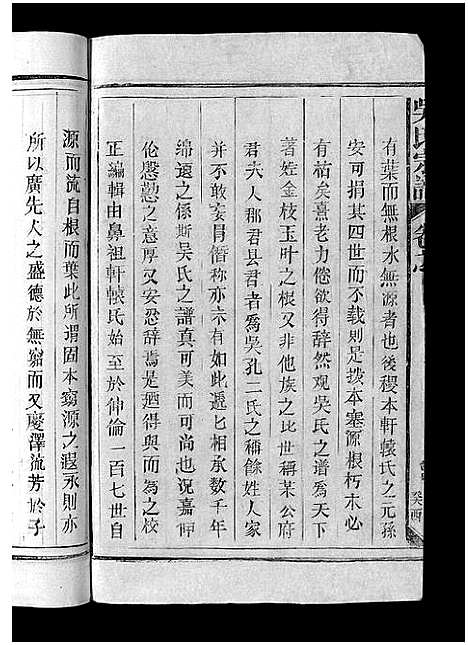 吳氏宗譜 卷之
癸酉
有葉而無根水無源者也後稷本軒轅氏之元孫
安可捐其四世而不载則是拨本塞源根朽木必
有枯矣熹老力倦欲得辞然观吳氏之谱爲天下
著姓金枝玉叶之根又非他族之比世稱某公府
君夫人郡君县君者爲吳孔二氏之稱餘姓人家
并不敢妄冐僭称亦未有如此遞匕相承数千年
绵遠之係斯吳氏之譜真可美而可尚也况嘉伊
伦慇懃之意厚又安忍辞焉是廼得與而為之校
正编輯由鼻祖軒轅氏始至於伸倫一百七世自
源而流自根而葉此所谓固本窮源之遐永則亦
所以廣先人之盛德於無窮而又慶澤流芳於子